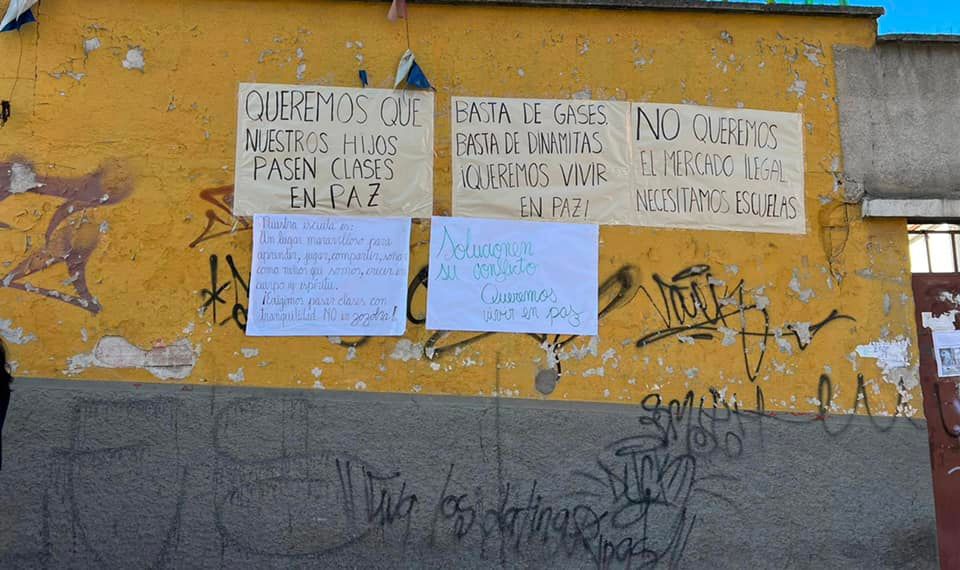 QUEREMOS QUE
NUESTROS HIJOS
PASEN CLASES
EN PAZ
BASTA DE GASES.
BASTA DE DINAMITAS
¡QUEREMOS VIVIR
EN PAZ!
NO QUEREMOS
EL MERCADO ILEGAL
NECESITAMOS ESCUELAS
Nuestra escuela es:
Un lugar maravilloso para
aprender, jugar, compartir, soñar
como niños que somos, crecer en
cuerpo y espíritu.
¡Exigimos pasar clases con
tranquilidad NO en zozobra!
Solucionen
su conflicto
Queremos
vivir en paz
Viva los